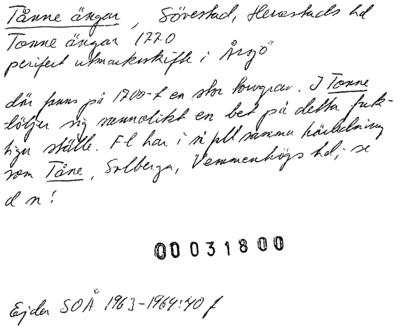 Tånne ängar, Sövestad, Herrestads hd
Tonne ängar 1770
perifert utmarksskifte i Årsjö
där fanns på 1700-t en stor torvgrav. I Tonne
döljer sig sannolikt en bet på detta fuk-
tiga ställe. Fl har i så fall samma härledning
som Tåne, Solberga, Vemmenhögs hd, se
d n!
00031800
Ejder SOÅ 1963-1964:40 f